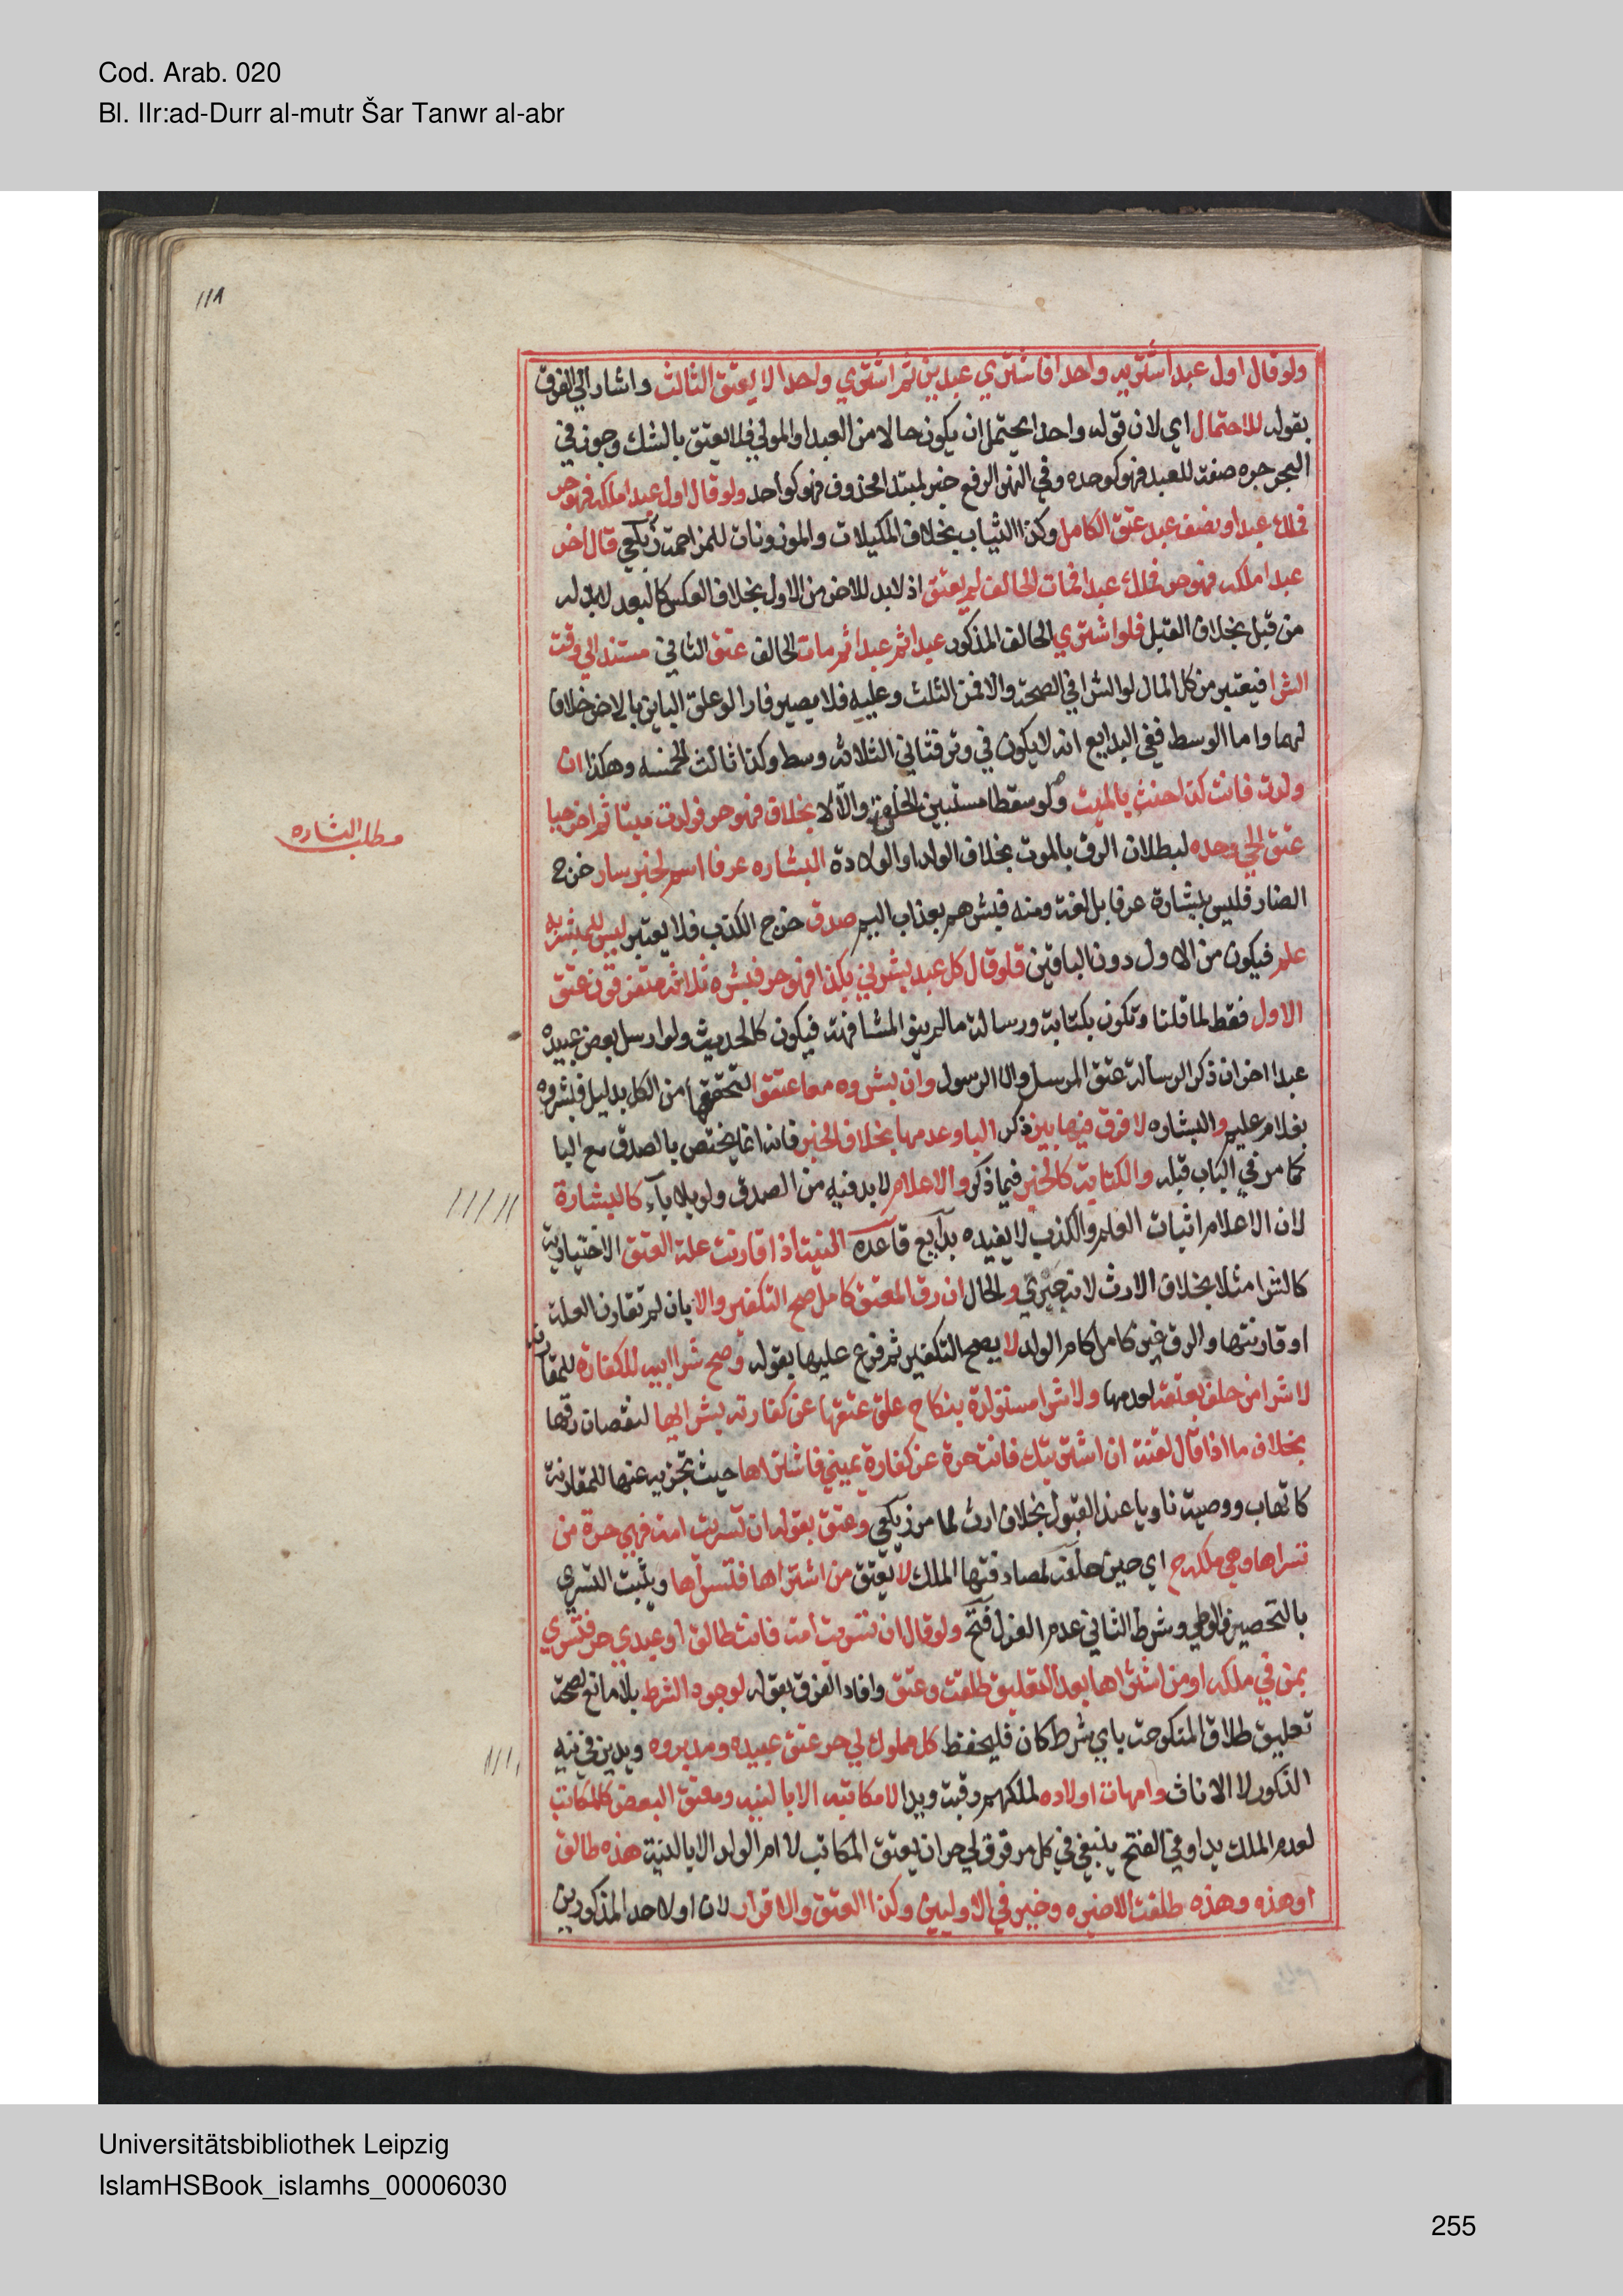 Cod. Arab. 020
Bl. IIr:ad-Durr al-mutr Šar Tanwr al-abr
١١٨
ولو قال اول عبد اشتريه واحدا فاشتري عبدين ثم اشتري واحدا لا يعتق الثالث واشار الي الفرق
بقوله للاحتمال اي لان قوله واحدا يحتمل ان يكون حالا من العبد او المولي فلا يعتق بالشك وجوز في
البحر جره صفة للعبد فهو كوحده وفي النهر الرفع خبر لمبتدا محذوف فهو كواحد ولو قال اول عبد املكه فهو حر
فملك عبدا ونصف عبد عتق الكامل وكذا الثياب بخلاف المكيلات والموزونات للمزاحمة زيلعي قال اخر
عبد املكه فهو حر فملك عبدا فمات الحالف لم يعتق اذ لا بد للاخر من الاول بخلاف العكس كالبعد لا بد له
من قبل بخلاف القبل فلو اشتري الحالف المذكور عبدا ثم عبدا ثم مات الحالف عتق الثاني مستندا الي وقت
الشرا فيعتبر من كل المال لو الشرا في الصحة والا فمن الثلث وعليه فلا يصير فارا لو علق الباين بالاخر خلافا
لهما واما الوسط ففي البدايع انه لا يكون في وتر فثاني الثلاثة وسط وكذا ثالث الخمسه وهكذا ان
ولدت فانت كذا حنث بالميت ولو سقطا مستبين الخلق والا لا بخلاف فهو حر فولدت ميتا ثم اخر حيا
عتق الحي وحده لبطلان الرق بالموت بخلاف الولد او الولادة البشاره عرفا اسم لخبر سار خرج
مطلب البشاره
الضار فليس ببشارة عرفا بل لغة ومنه فبشرهم بعذاب اليم صدق خرج الكذب فلا يعتبر ليس للمبشر به
علم فيكون من الاول دون الباقين فلو قال كل عبد بشرني بكذا فهو حر فبشره ثلاثة متفرقون عتق
الاول فقط لما قلنا وتكون بكتابة ورسالة ما لم ينو المشافهة فيكون كالحديث ولو ارسل بعض عبيده
عبدا اخر ان ذكر الرسالة عتق المرسل والا الرسول وان بشروه معا عتقوا لتحققها من الكل بدليل فبشروه
بغلام عليم والبشاره لا فرق فيها بين ذكر البا وعدمها بخلاف الخبر فانه انما يختص بالصدق مع البا
كما مر في الباب قبله والكتابة كالخبر فيما ذكر والاعلام لا بد فيه من الصدق ولو بلا بآء كالبشارة
لان الاعلام اثبات العلم والكذب لا يفيده بدآيع قاعده النية اذا قارنت علة العتق الاختيارية
كالشرا مثلا بخلاف الارث لانه جبري والحال ان رق المعتق كامل صح التكفير والا بان لم تقارن العلة
او قارنتها والرق غير كامل كام الولد لا يصح التكفير ثم فرع عليها بقوله وصح شرا ابيه للكفارة للمقارنة
لا شرا من حلف بعتقه لعدمها ولا شرا مستولدة بنكاح علق عتقها عن كفارته بشرايها لنقصان رقها
بخلاف ما اذا قال لقنة ان اشتريتك فانت حرة عن كفارة يميني فاشتراها حيث تجزيه عنها للمقارنة
كاتهاب ووصية ناويا عند القبول بخلاف ارث لما مر زيلعي وعتق بقوله ان تسريت امة فهي حرة من
تسراها وهي ملكه ح اي حين حلفه لمصادفتها الملك لا يعتق من اشتراها فتسراها ويثبت التسري
بالتحصين والوطي وشرط الثاني عدم العزل فتح ولو قال ان تسريت امة فانت طالق او عبدي حر فتسري
بمن في ملكه او من اشتراها بعد التعليق طلقت وعتق وافاد الفرق بقوله لوجود الشرط بلا مانع لصحة
تعليق طلاق المنكوحة باي شرط كان فليحفظ كل مملوك لي حر عتق عبيده ومدبروه ويدين في نية
الذكور لا الاناث وامهات اولاده لملكهم رقبة ويدا لا مكاتبه الا بالنية ومعتق البعض كالمكاتب
لعدم الملك يدا وفي الفتح ينبغي في كل مرقوق لي حر ان يعتق المكاتب لا ام الولد الا بالنية هذه طالق
او هذه وهذه طلقت الاخيره وخير في الاوليين وكذا العتق والاقرار لان او لاحد المذكورين
Universitätsbibliothek Leipzig
IslamHSBook_islamhs_00006030
255